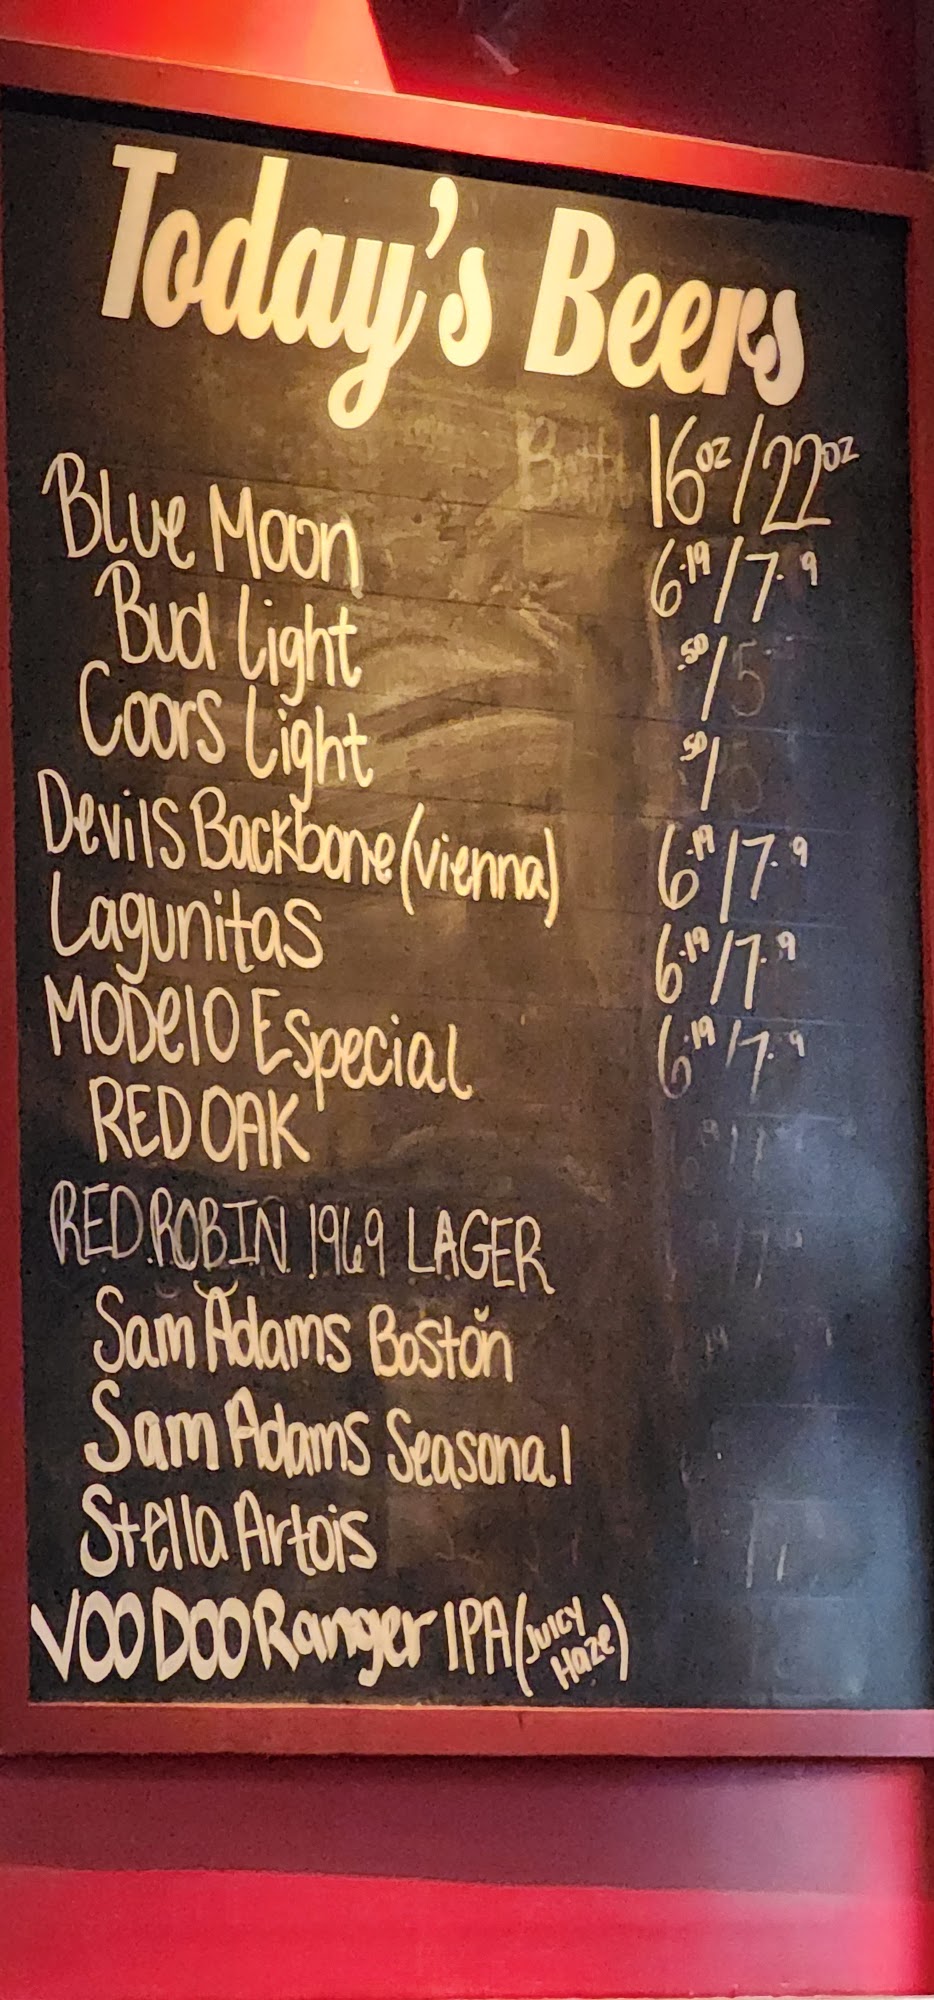 Today's Beers
16oz/22oz
Blue Moon 6.19/7. 9
Bud Light .50/5
Coors Light .50/
Devils Backbone (Vienna) 6.19/7. 9
Lagunitas 6.19/7. 9
Modelo Especial 6.19/7. 9
RED OAK
RED ROBIN 1969 LAGER
Sam Adams Boston
Sam Adams Seasonal
Stella Artois
VOODOO Ranger IPA (Juicy Haze)